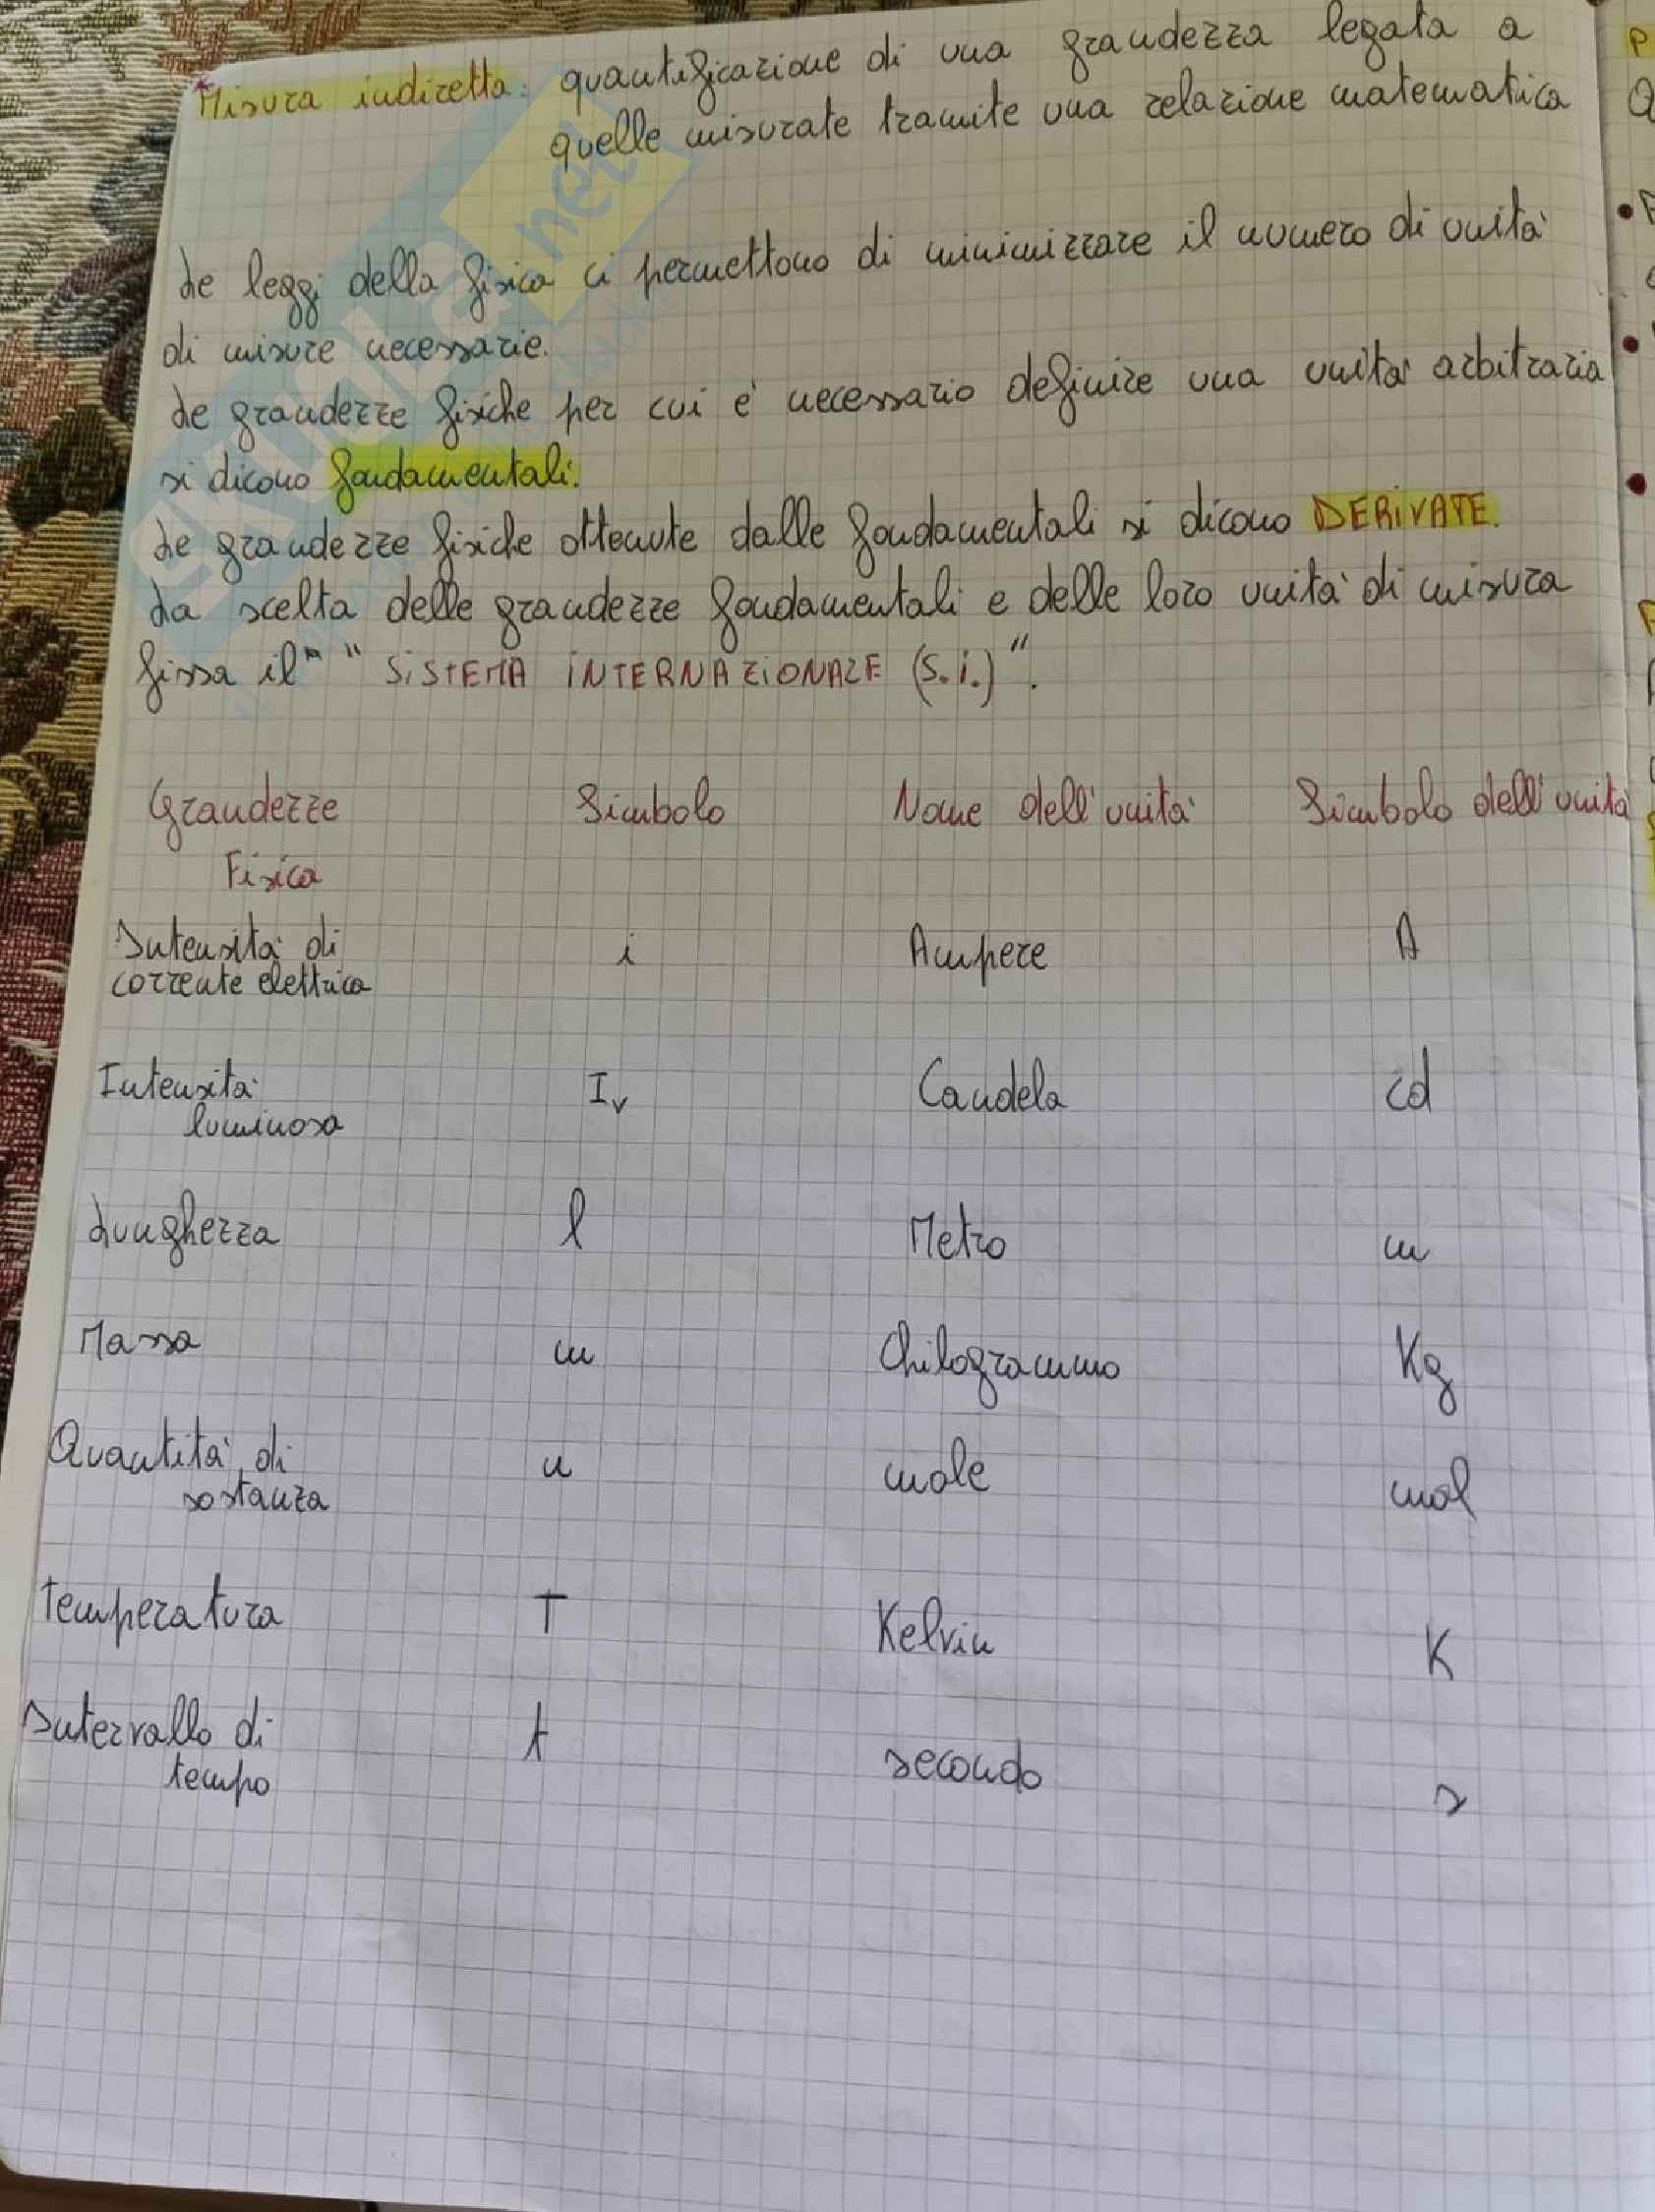 Misura indiretta: quantificazione di una grandezza legata a
quelle misurate tramite una relazione matematica
Le leggi della fisica ci permettono di minimizzare il numero di unità
di misure necessarie.
Le grandezze fisiche per cui è necessario definire una unità arbitraria
si dicono fondamentali.
Le grandezze fisiche ottenute dalle fondamentali si dicono DERIVATE.
La scelta delle grandezze fondamentali e delle loro unità di misura
fissa il " SISTEMA INTERNAZIONALE (S.i.)".
Grandezze Simbolo Nome dell'unità Simbolo dell'unità
Fisica
Intensità di i Ampere A
corrente elettrica
Intensità Iv Candela cd
luminosa
Lunghezza l Metro m
Massa m Chilogrammo Kg
Quantità di n mole mol
sostanza
Temperatura T Kelvin K
Intervallo di t secondo s
tempo
SKUOLA.net